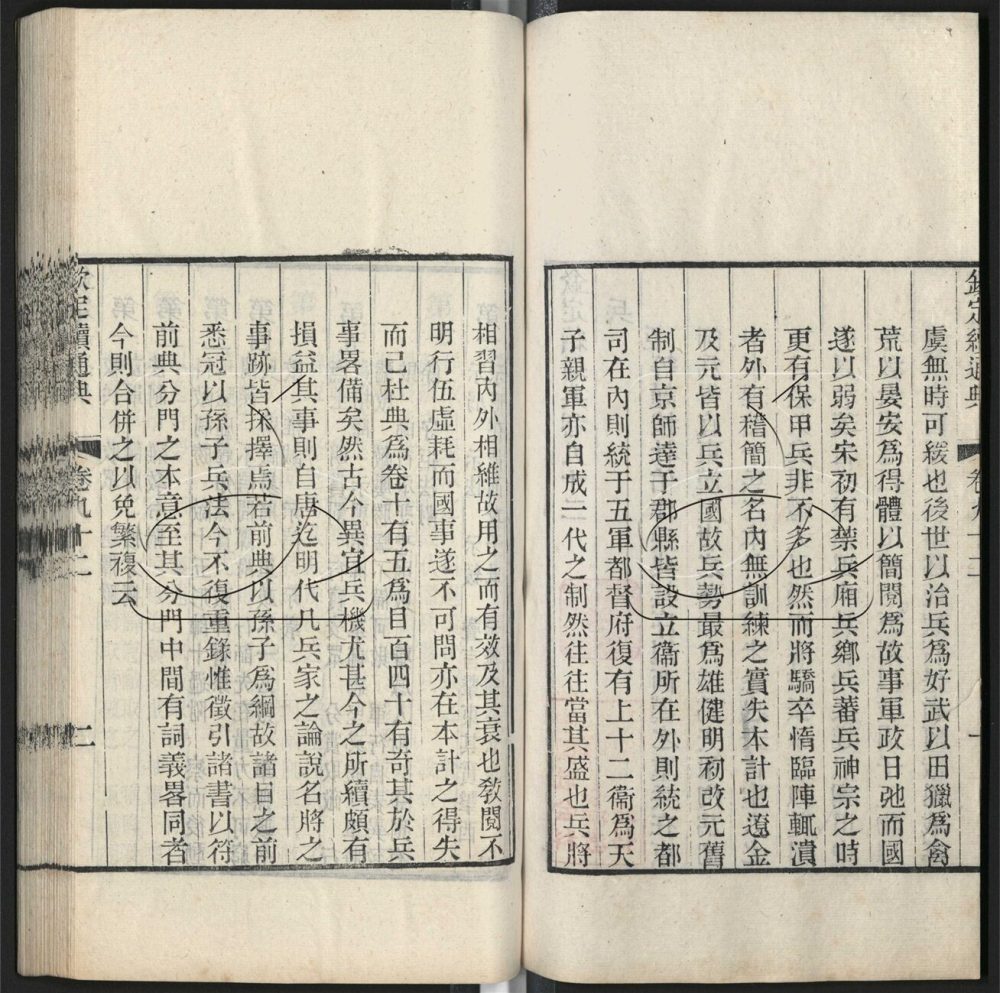 欽定續通典 卷九十二 一
虞無時可緩也後世以治兵爲好武以田獵爲禽
荒以晏安爲得體以簡閱爲故事軍政日弛而國
遂以弱矣宋初有禁兵廂兵鄉兵蕃兵神宗之時
更有保甲兵非不多也然而將驕卒惰臨陣輒潰
者外有稽簡之名內無訓練之實失本計也遼金
及元皆以兵立國故兵勢最爲雄健明初改元舊
制自京師達于郡縣皆設立衞所在外則統之都
司在內則統于五軍都督府復有上十二衞爲天
子親軍亦自成一代之制然往往當其盛也兵將
相習內外相維故用之而有效及其衰也敎閱不
明行伍虛耗而國事遂不可問亦在本計之得失
而已杜典爲卷十有五爲目百四十有奇其於兵
事畧備矣然古今異宜兵機尤甚今之所續頗有
損益其事則自唐迄明代凡兵家之論說名將之
事跡皆採擇焉若前典以孫子爲綱故諸目之前
悉冠以孫子兵法今不復重錄惟徵引諸書以符
前典分門之本意至其分門中間有詞義畧同者
今則合併之以免繁複云
欽定續通典 卷九十二 二